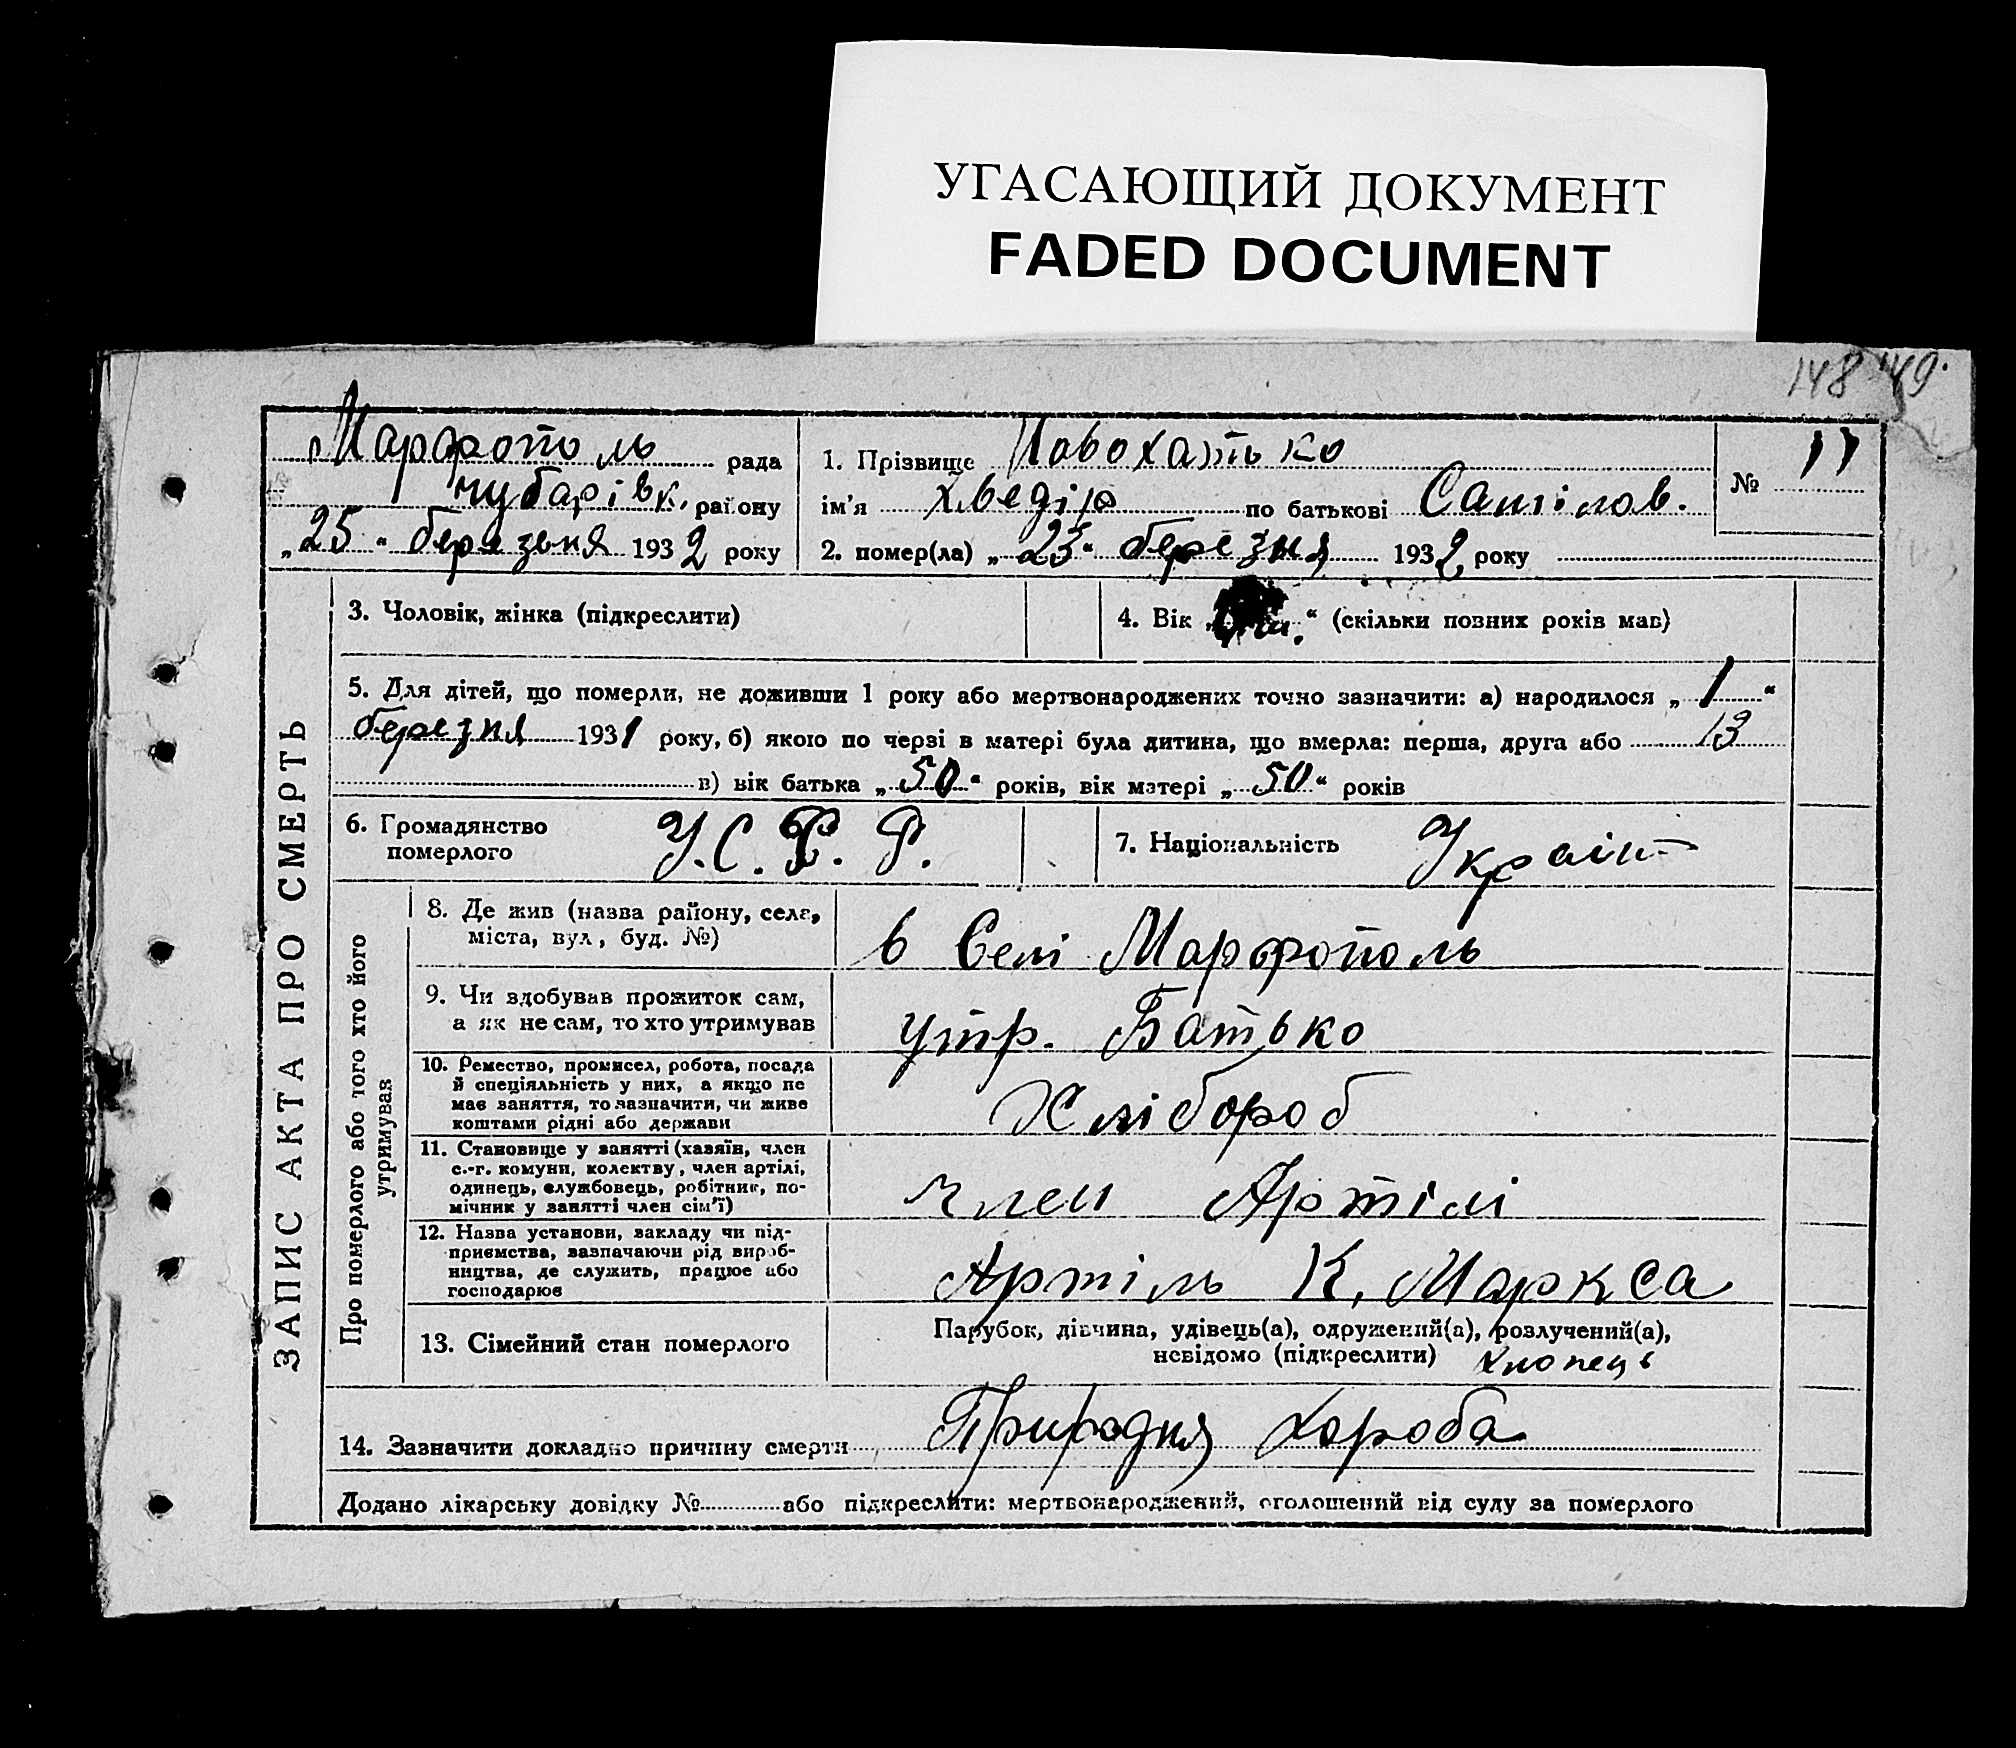 УГАСАЮЩИЙ ДОКУМЕНТ
FADED DOCUMENT
148 149.
Марфополь рада
чубарівк. району
„25“ березьня 1932 року
1. Прізвище Новохатько
ім'я Хведір по батькові Самійлов.
2. помер(ла) „23“ березня 1932 року
№ 11
ЗАПИС АКТА ПРО СМЕРТЬ
3. Чоловік, жінка (підкреслити)
4. Вік „ “ (скільки повних років мав)
5. Для дітей, що померли, не доживши 1 року або мертвонароджених точно зазначити: а) народилося „1“
березня 1931 року, б) якою по черзі в матері була дитина, що вмерла: перша, друга або 13
в) вік батька „50“ років, вік матері „50“ років
6. Громадянство
померлого
У.С.Р.Р.
7. Національність Украін
Про померлого або того хто його
утримував
8. Де жив (назва району, села,
міста, вул, буд. №)
в Селі Марфополь
9. Чи здобував прожиток сам,
а як не сам, то хто утримував
утр. Батько
10. Ремество, промисел, робота, посада
й спеціяльність у них, а якщо не
має заняття, то зазначити, чи живе
коштами рідні або держави
Хлібороб
11. Становище у занятті (хазяїн, член
с.-г. комуни, колективу, член артілі,
одинець, службовець, робітник, по-
мічник у занятті член сім'ї)
член Артілі
12. Назва установи, закладу чи під-
приємства, зазначаючи рід вироб-
ництва, де служить, працює або
господарює
Артіль К. Маркса
13. Сімейний стан померлого
Парубок, дівчина, удівець(а), одружений(а), розлучений(а),
невідомо (підкреслити) хлопець
14. Зазначити докладно причину смерти Природня хороба
Додано лікарську довідку № або підкреслити: мертвонароджений, оголошений від суду за померлого